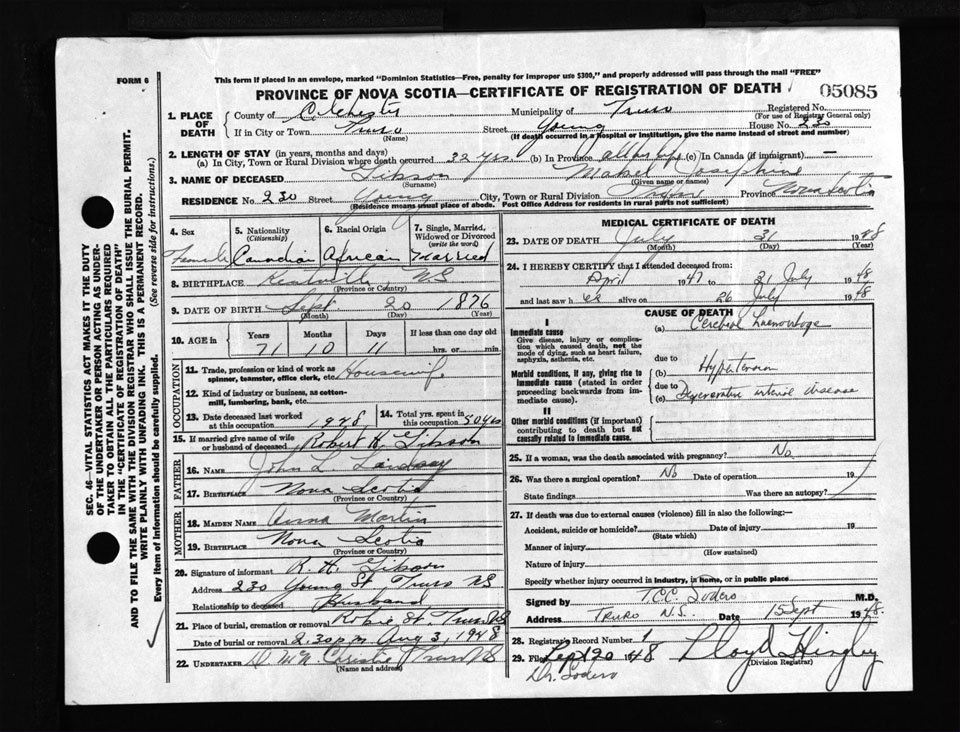 FORM 6
This form if placed in an envelope, marked "Dominion Statistics—Free, penalty for improper use $300," and properly addressed will pass through the mail "FREE"
PROVINCE OF NOVA SCOTIA—CERTIFICATE OF REGISTRATION OF DEATH
05085
1. PLACE OF DEATH
County of Colchester Municipality of Truro Registered No.
(For use of Registrar General only)
If in City or Town Truro Street Young House No. 230
(Name) (If death occurred in a hospital or institution, give the name instead of street and number)
2. LENGTH OF STAY (in years, months and days)
(a) In City, Town or Rural Division where death occurred 32 yrs. (b) In Province all her life (c) In Canada (if immigrant) —
3. NAME OF DECEASED Gibson Mabel Josephine
(Surname) (Given name or names)
RESIDENCE No. 230 Street Young City, Town or Rural Division Truro Province Nova Scotia
(Residence means usual place of abode. Post Office Address for residents in rural parts not sufficient)
4. Sex 5. Nationality (Citizenship) 6. Racial Origin 7. Single, Married, Widowed or Divorced (write the word)
Female Canadian African Married
8. BIRTHPLACE Kentville N.S
(Province or Country)
9. DATE OF BIRTH Sept 20 1876
(Month) (Day) (Year)
10. AGE in Years Months Days If less than one day old
71 10 11 hrs. or min.
OCCUPATION
11. Trade, profession or kind of work as spinner, teamster, office clerk, etc. Housewife
12. Kind of industry or business, as cotton-mill, lumbering, bank, etc.
13. Date deceased last worked at this occupation 1948 14. Total yrs. spent in this occupation 50 yrs
15. If married give name of wife or husband of deceased Robert H Gibson
FATHER
16. NAME John L. Lindsay
17. BIRTHPLACE Nova Scotia
(Province or Country)
MOTHER
18. MAIDEN NAME Anna Martin
19. BIRTHPLACE Nova Scotia
(Province or Country)
20. Signature of informant R. H. Gibson
Address 230 Young St Truro NS
Relationship to deceased Husband
21. Place of burial, cremation or removal Robie St. Truro NS
Date of burial or removal 2.30 pm Aug 3, 1948
22. UNDERTAKER D. McN. Christie Truro NS
(Name and address)
MEDICAL CERTIFICATE OF DEATH
23. DATE OF DEATH July 31 1948
(Month) (Day) (Year)
24. I HEREBY CERTIFY that I attended deceased from:
April 1947 31 July 1948
and last saw her alive on 26 July 1948
CAUSE OF DEATH
I
Immediate cause
Give disease, injury or complication which caused death, not the mode of dying, such as heart failure, asphyxia, asthenia, etc.
(a) Cerebral haemorrhage
due to
Morbid conditions, if any, giving rise to immediate cause (stated in order proceeding backwards from immediate cause).
Hypertension
due to
(c) Degenerative arterial disease
II
Other morbid conditions (if important) contributing to death but not causally related to immediate cause.
25. If a woman, was the death associated with pregnancy? No
26. Was there a surgical operation? No Date of operation 19
State findings Was there an autopsy?
27. If death was due to external causes (violence) fill in also the following:—
Accident, suicide or homicide? Date of injury 19
(State which)
Manner of injury
(How sustained)
Nature of injury
Specify whether injury occurred in industry, in home, or in public place
Signed by T.C.C. Sodero M.D.
Address TRURO N.S. Date 1 Sept 1948.
28. Registrar's Record Number 1
29. Filed Sept 20 1948 Lloyd Hingley
(Division Registrar)
Dr. Sodero
SEC. 46—VITAL STATISTICS ACT MAKES IT THE DUTY
OF THE UNDERTAKER OR PERSON ACTING AS UNDERTAKER TO OBTAIN ALL THE PARTICULARS REQUIRED
IN THE "CERTIFICATE OF REGISTRATION OF DEATH"
AND TO FILE THE SAME WITH THE DIVISION REGISTRAR WHO SHALL ISSUE THE BURIAL PERMIT.
WRITE PLAINLY WITH UNFADING INK. THIS IS A PERMANENT RECORD.
Every item of information should be carefully supplied. (See reverse side for instructions.)